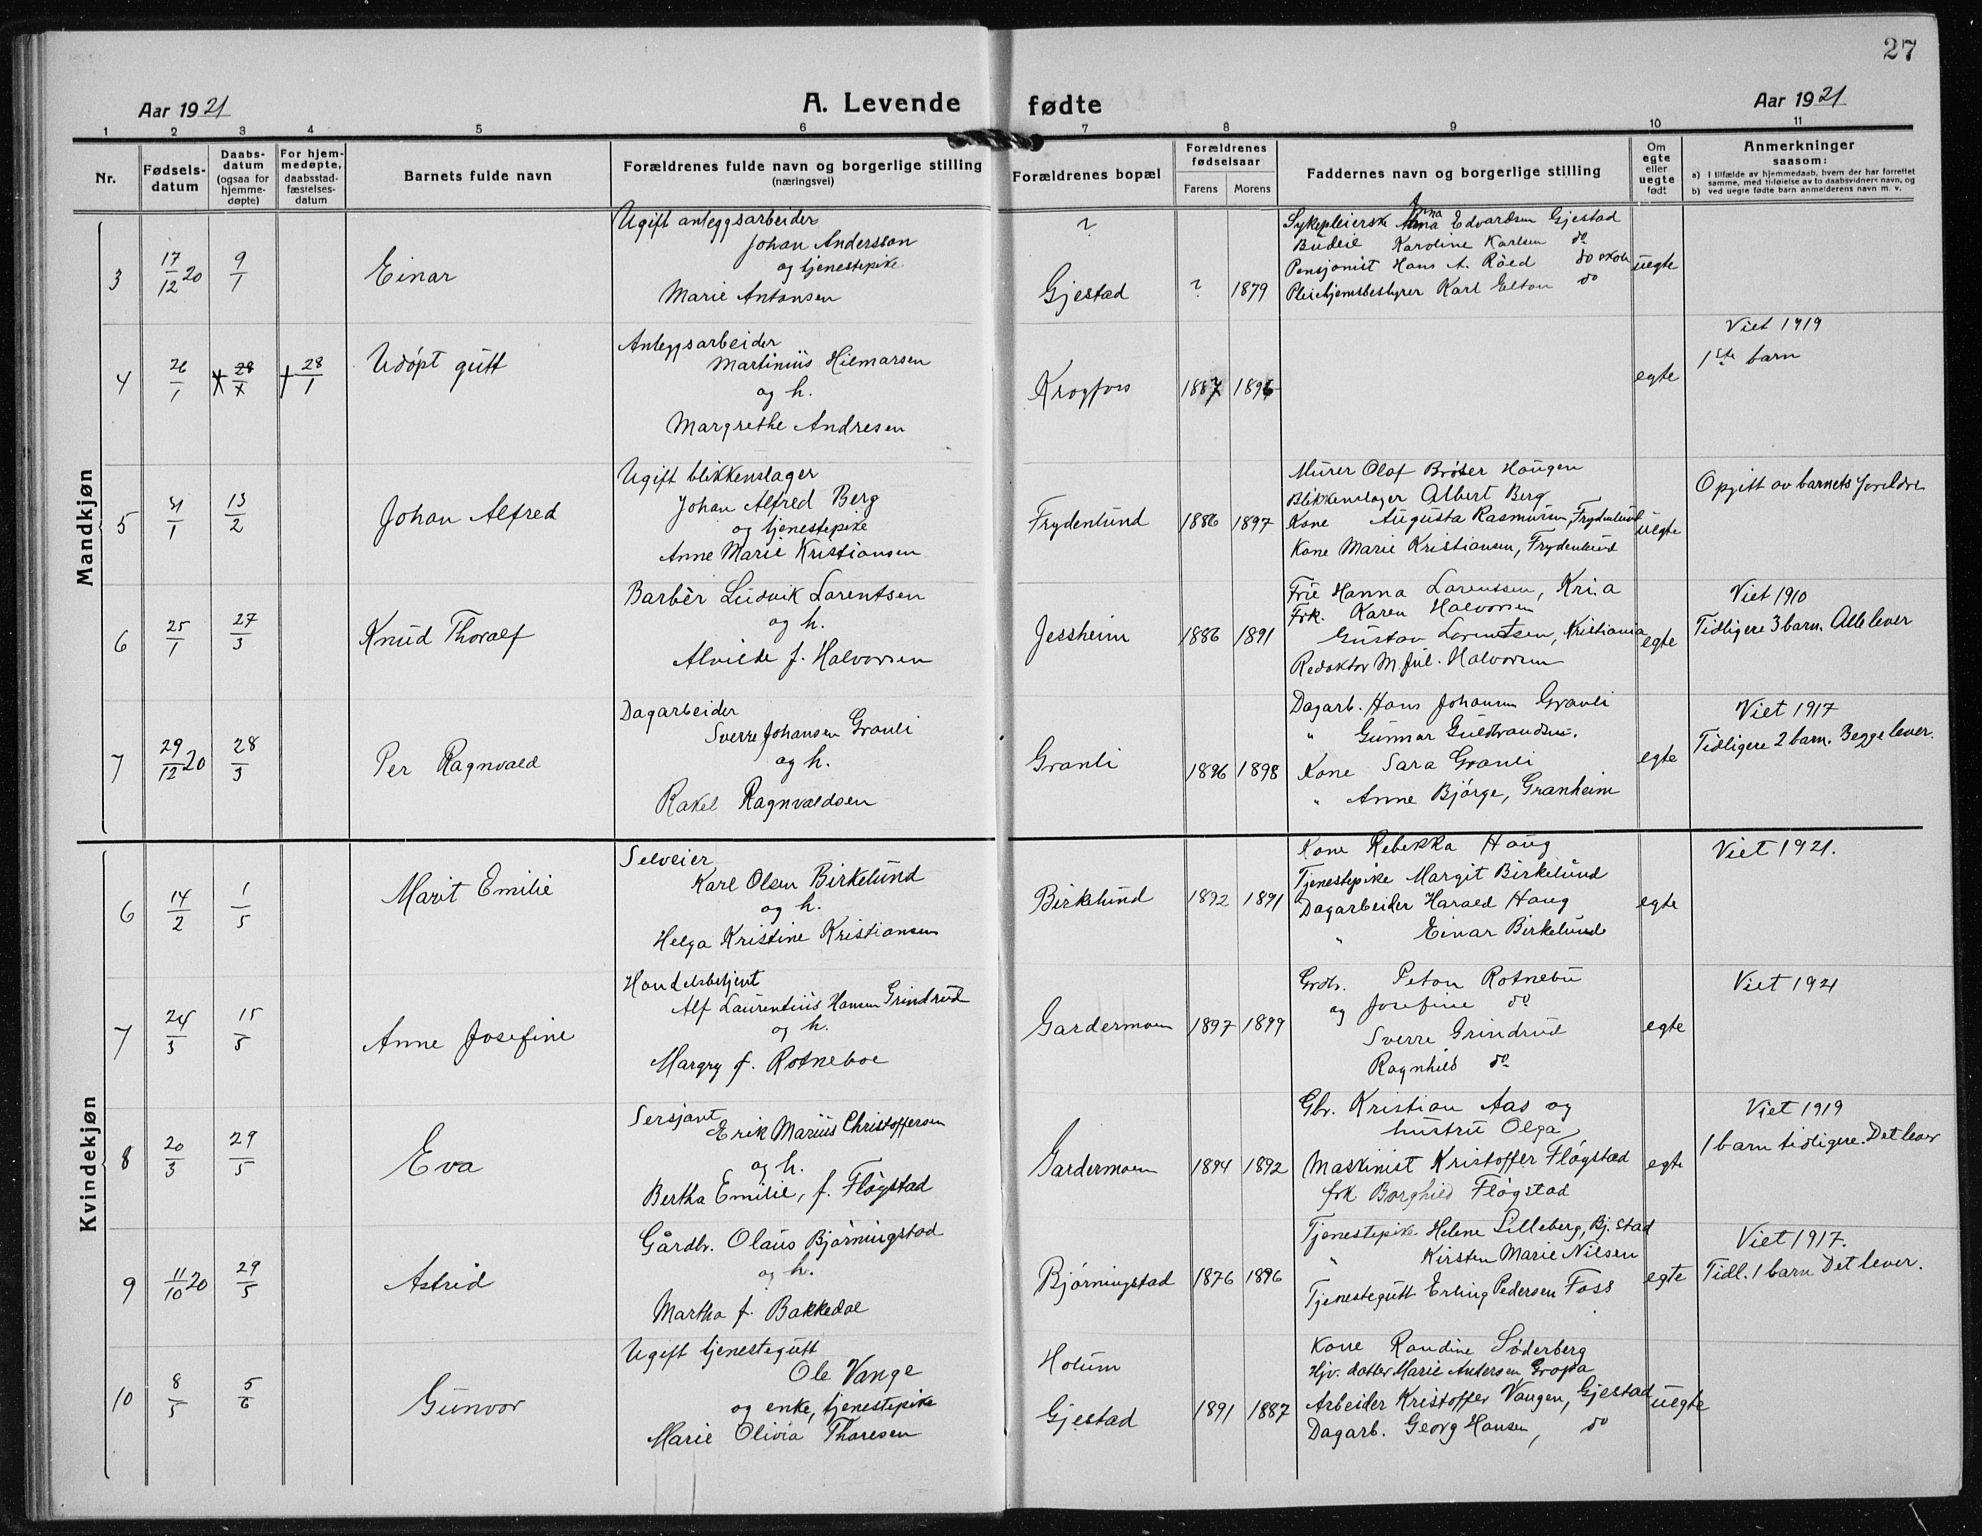 27
Aar 1921
A. Levende fødte
Aar 1921
1 2 3 4 5 6 7 8 9 10 11
Nr.
Fødsels-
datum
Daabs-
datum
(ogsaa for
hjemme-
døpte)
For hjem-
medøpte,
daabsstad-
fæstelses-
datum
Barnets fulde navn
Forældrenes fulde navn og borgerlige stilling
(næringsvei)
Forældrenes bopæl
Forældrenes
fødselsaar
Farens Morens
Faddernes navn og borgerlige stilling
Om
egte
eller
uegte
født
Anmerkninger
saasom:
a) I tilfælde av hjemmedaab, hvem der har forrettet
samme, med tilføielse av to daabsvidners navn, og
b) ved uegte fødte barn anmelderens navn m. v.
Mandkjøn
3 17/12 20 9/1 Einar
Ugift anleggsarbeider
Johan Andersson
og tjenestepike
Marie Antonsen
?
Gjestad ? 1879
Sykepleierske Anna Edvardsen Gjestad
Budeie Karoline Karlsen do
Pensjonist Hans A. Röed do
Pleiehjemsbestyrer Karl Elton do
uegte
4 26/1 28/1 † 28/1 Udøpt gutt
Anleggsarbeider
Martinius Hilmarsen
og h.
Margrethe Andresen
Krogfoss 1887 1896
egte
Viet 1919
1ste barn
5 4/1 13/2 Johan Alfred
Ugift blikkenslager
Johan Alfred Berg
og tjenestepike
Anne Marie Kristiansen
Frydenlund 1886 1897
Murer Olaf Haugen
Blikkenslager Albert Berg
Kone Augusta Rasmussen, Frydenlund
Kone Marie Kristiansen, Frydenlund
uegte
Opgitt av barnets foreldre
6 25/1 27/3 Knud Thoralf
Barbèr Ludvik Lorentsen
og h.
Alvilde f. Halvorsen
Jessheim 1886 1891
Frue Hanna Lorentsen, Kr.a
Frk. Karen Halvorsen
Gustav Lorentsen, Kristiania
Redaktør M. Jul. Halvorsen
egte
Viet 1910
Tidligere 3 barn. Alle lever
7 29/12 20 28/3 Per Ragnvald
Dagarbeider
Sverre Johansen Granli
og h.
Rakel Ragnvaldsen
Granli 1896 1898
Dagarb. Hans Johansen Granli
" Gunnar Guldbrandsen.
Kone Sara Granli
" Anne Bjørge, Granheim
egte
Viet 1917
Tidligere 2 barn. Begge lever.
Kvindekjøn
6 14/2 1/5 Marit Emilie
Selveier
Karl Olsen Birkelund
og h.
Helga Kristine Kristiansen
Birkelund 1892 1891
Kone Rebekka Haug
Tjenestepike Margit Birkelund
Dagarbeider Harald Haug
" Einar Birkelund
egte
Viet 1921.
7 24/3 15/5 Anne Josefine
Handelsbetjent
Alf Laurentius Hansen Grindrud
og h.
Margry f. Rotneboe
Gardermoen 1897 1899
Grdbr. Peton Rotnebu
og Josefine do
Sverre Grindrud
Ragnhild do
egte
Viet 1921
8 20/3 29/5 Eva
Sersjant
Erik Marius Christoffersen
og h.
Bertha Emilie, f. Fløgstad
Gardermoen 1894 1892
Gbr. Kristian Aas og
hustru Olga
Maskinist Kristoffer Fløgstad
frk Borghild Fløgstad
egte
Viet 1919
1 barn tidligere. Det lever
9 11/10 20 29/5 Astrid
Gårdbr. Olaus Bjørningstad
og h.
Martha f. Bakkedal
Bjørningstad 1876 1896
Tjenestepike Helene Lilleberg, Bj.stad
" Kirsten Marie Nilsen
Tjenestegutt Erling Pedersen Foss
egte
Viet 1917.
Tidl. 1 barn Det lever.
10 8/5 5/6 Gunvor
Ugift tjenestegutt
Ole Vange
og enke, tjenestepike
Marie Olivia Thoresen
Holum
Gjestad 1891 1887
Kone Randine Søderberg
Hjv. datter Marie Andersen, Gropa
Arbeider Kristoffer Vangen, Gjestad
Dagarb. Georg Hansen, do
uegte